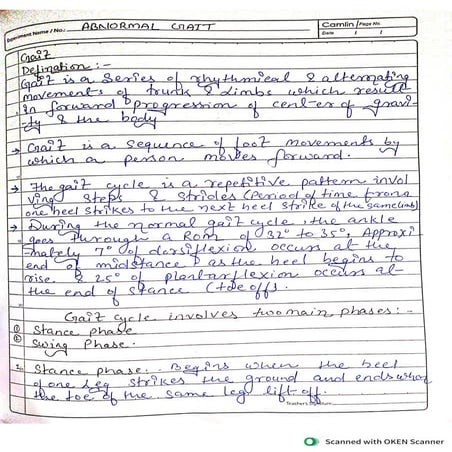 Experiment Name / No.: ABNORMAL GAIT
Camlin Page No.
Date / /
Gait
Defination :-
Gait is a series of rhythmical & alternating
movements of trunk & limbs which result
in forward progression of center of gravi-
ty & the body
→ Gait is a sequence of foot movements by
which a person moves forward.
→ The gait cycle is a repetitive pattern invol
ving steps & strides (period of time from
one heel strikes to the next heel strike of the same limb)
→ During the normal gait cycle, the ankle
goes through a ROM of 32° to 35°, Approxi
mately 7° of dorsiflexion occurs at the
end of midstance as the heel begins to
rise & 25° of plantarflexion occurs at
the end of stance (toe off).
Gait cycle involves two main phases :-
① Stance phase
② Swing Phase.
Stance phase :- Begins when the heel
of one leg strikes the ground and ends when
the toe of the same leg lift off.
Teacher's Signature
Scanned with OKEN Scanner